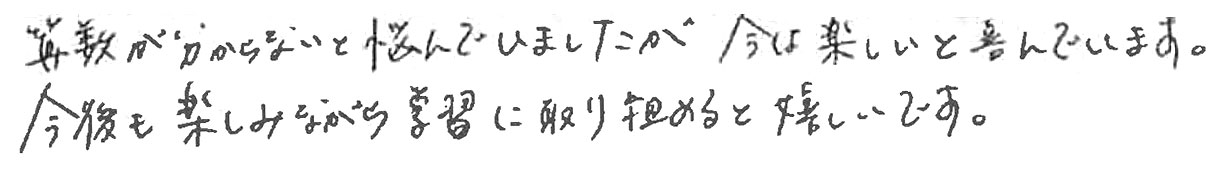 算数が分からないと悩んでいましたが今は楽しいと喜んでいます。
今後も楽しみながら学習に取り組めると嬉しいです。